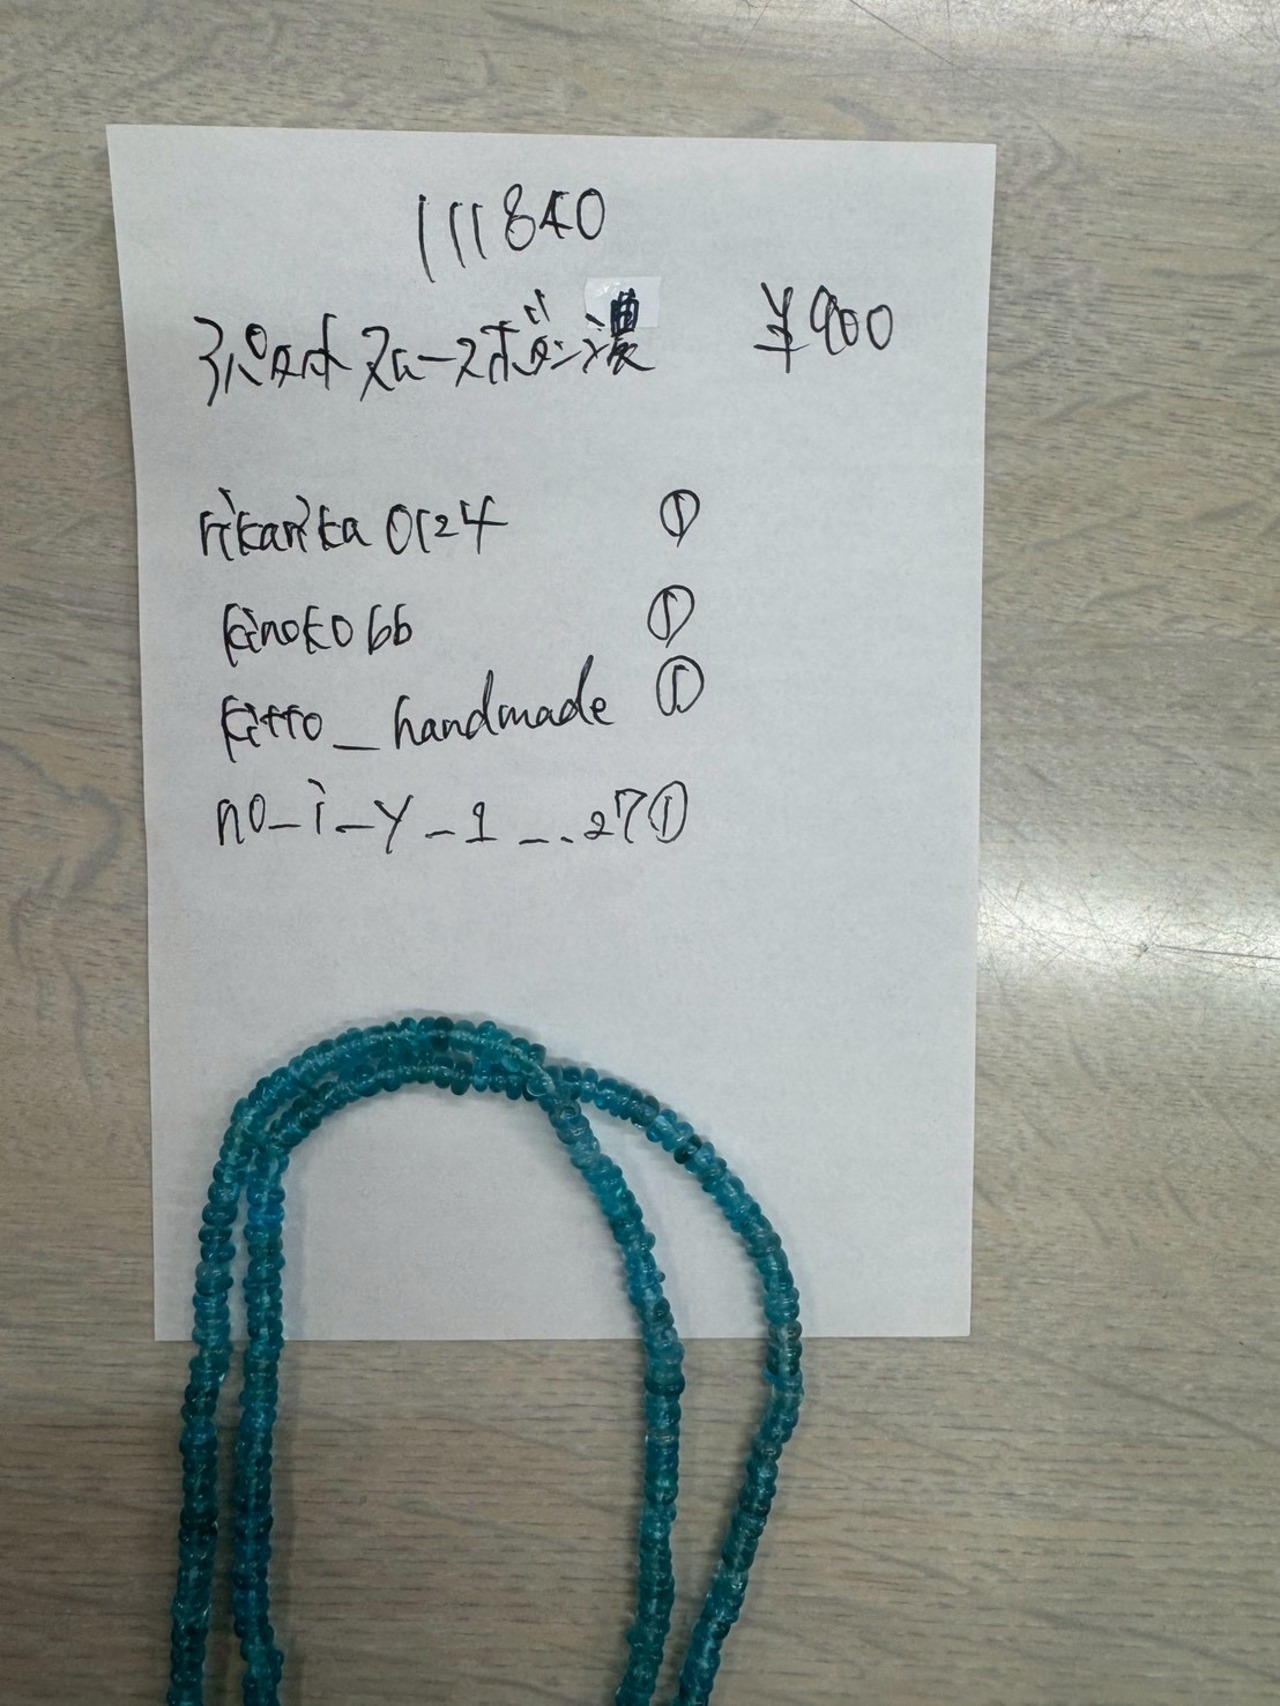 111840
アパタイト スムースボタン濃 ¥900
rikarika0124 ①
kinoko66 ①
kitto_handmade ①
no_i_y_1__.27 ①